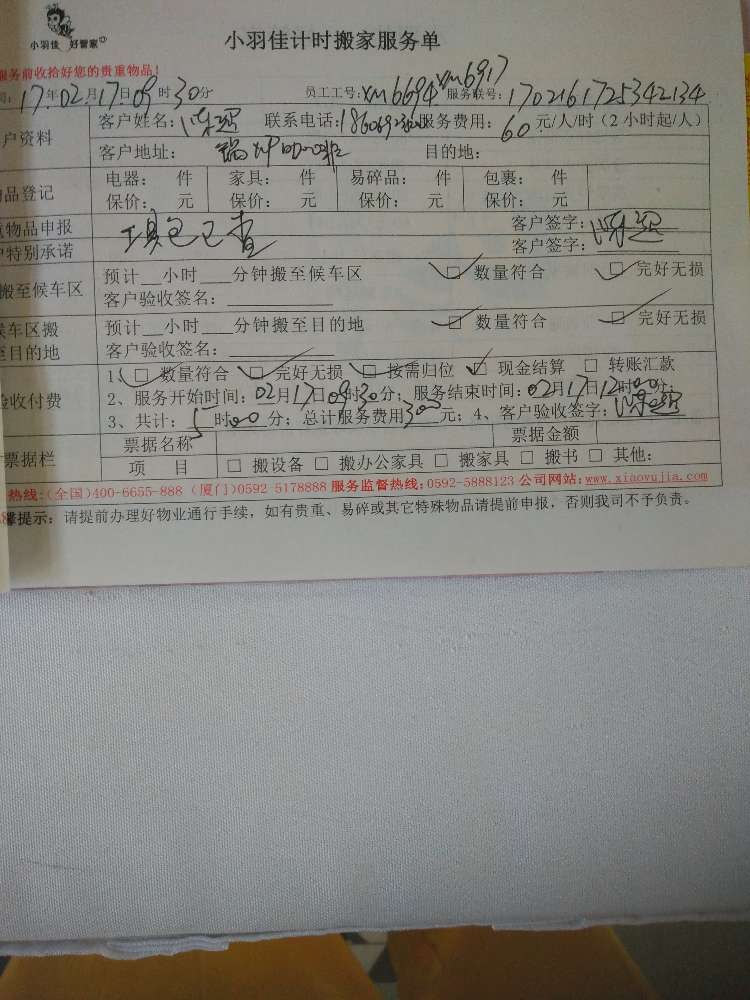 小羽佳 好管家
小羽佳计时搬家服务单
服务前收拾好您的贵重物品!
间:17年02月17日09时30分 员工工号:xm6694 xm6917 服务联号:1702161725342134
户资料 客户姓名: 联系电话: 服务费用:60元/人/时(2小时起/人)
客户地址: 目的地:
品登记 电器: 件 家具: 件 易碎品: 件 包裹: 件
保价: 元 保价: 元 保价: 元 保价: 元
物品申报 工具包已查 客户签字:
户特别承诺 客户签字:
搬至候车区 预计__小时___分钟搬至候车区 □ 数量符合 □ 完好无损
客户验收签名:
候车区搬 预计__小时___分钟搬至目的地 □ 数量符合 □ 完好无损
至目的地 客户验收签名:
验收付费 1、□ 数量符合 □ 完好无损 □ 按需归位 □ 现金结算 □ 转账汇款
2、服务开始时间:02月17日09时30分; 服务结束时间:02月17日12时00分;
3、共计:5时00分; 总计服务费用300元; 4、客户验收签字:
票据栏 票据名称 票据金额
项 目 □ 搬设备 □ 搬办公家具 □ 搬家具 □ 搬书 □ 其他:
热线:(全国)400-6655-888 (厦门)0592 5178888 服务监督热线:0592-5888123 公司网站:www.xiaoyujia.com
馨提示:请提前办理好物业通行手续,如有贵重、易碎或其它特殊物品请提前申报,否则我司不予负责。